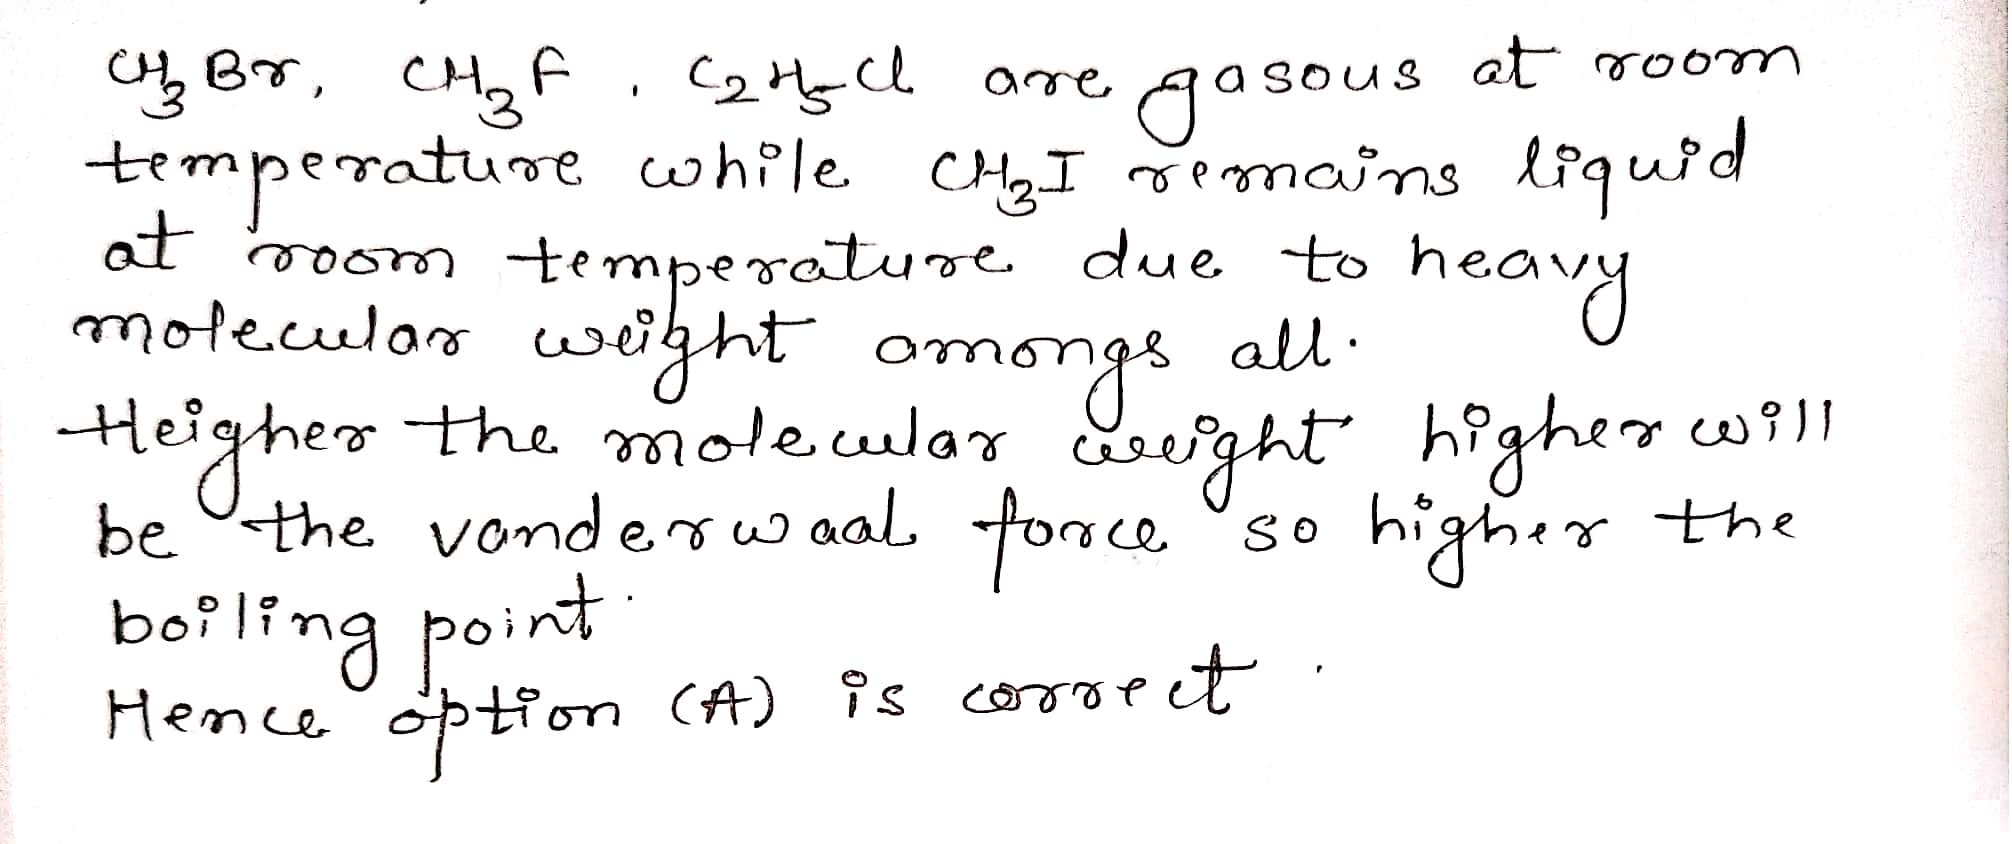 CH3Br, CH3F, C2H5Cl are gasous at room
temperature while CH3I remains liquid
at room temperature due to heavy
molecular weight amongs all.
Heigher the molecular weight higher will
be the vanderwaal force so higher the
boiling point.
Hence option (A) is correct.